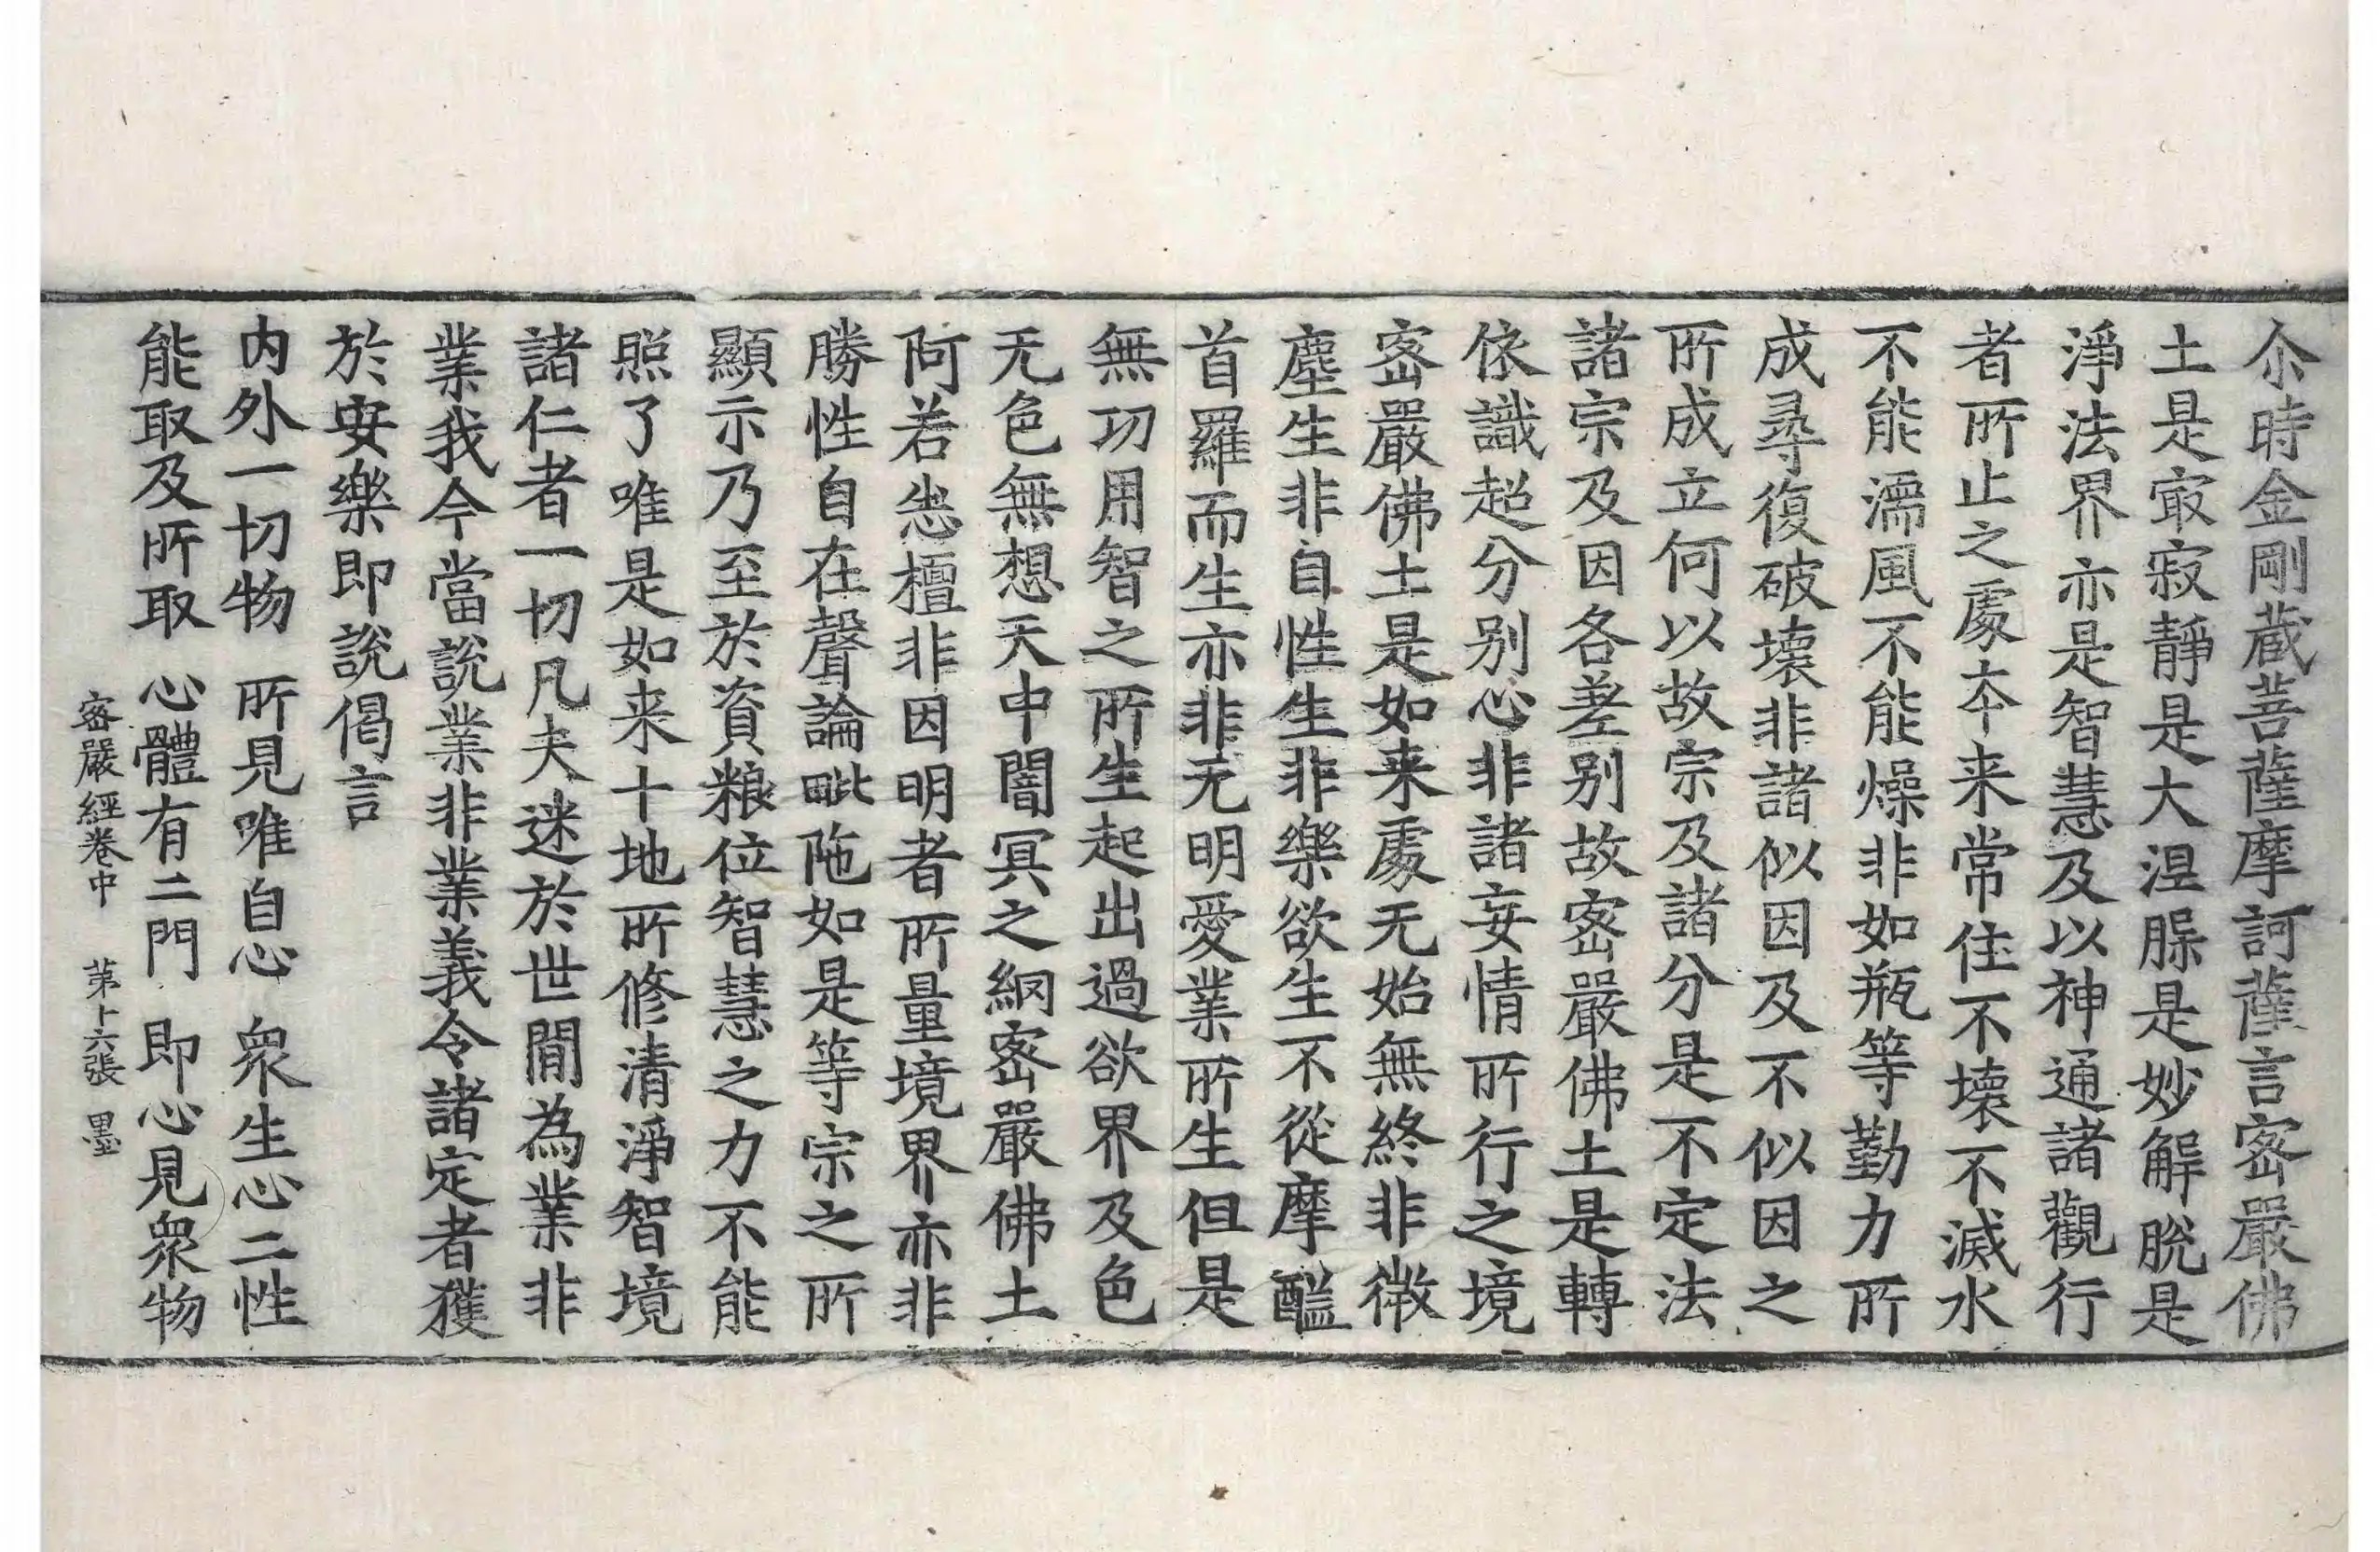 尒時金剛藏菩薩摩訶薩言密嚴佛
土是㝡寂靜是大涅槃是妙解脫是
淨法界亦是智慧及以神通諸觀行
者所止之處夲来常住不壞不滅水
不能濡風不能燥非如瓶等勤力所
成尋復破壞非諸似因及不似因之
所成立何以故宗及諸分是不定法
諸宗及因各差别故密嚴佛土是轉
依識超分别心非諸妄情所行之境
密嚴佛土是如来處无始無終非微
塵生非自性生非樂欲生不從摩醯
首羅而生亦非无明愛業所生但是
無功用智之所生起出過欲界及色
无色無想天中闇冥之網密嚴佛土
阿若悉檀非因明者所量境界亦非
勝性自在聲論毗陁如是等宗之所
顯示乃至於資粮位智慧之力不能
照了唯是如来十地所修清淨智境
諸仁者一切凡夫迷於世間為業非
業我今當説業非業義令諸定者獲
於安樂即説偈言
内外一切物　所見唯自心　衆生心二性
能取及所取　心體有二門　即心見衆物
密嚴經卷中　苐十六張　墨